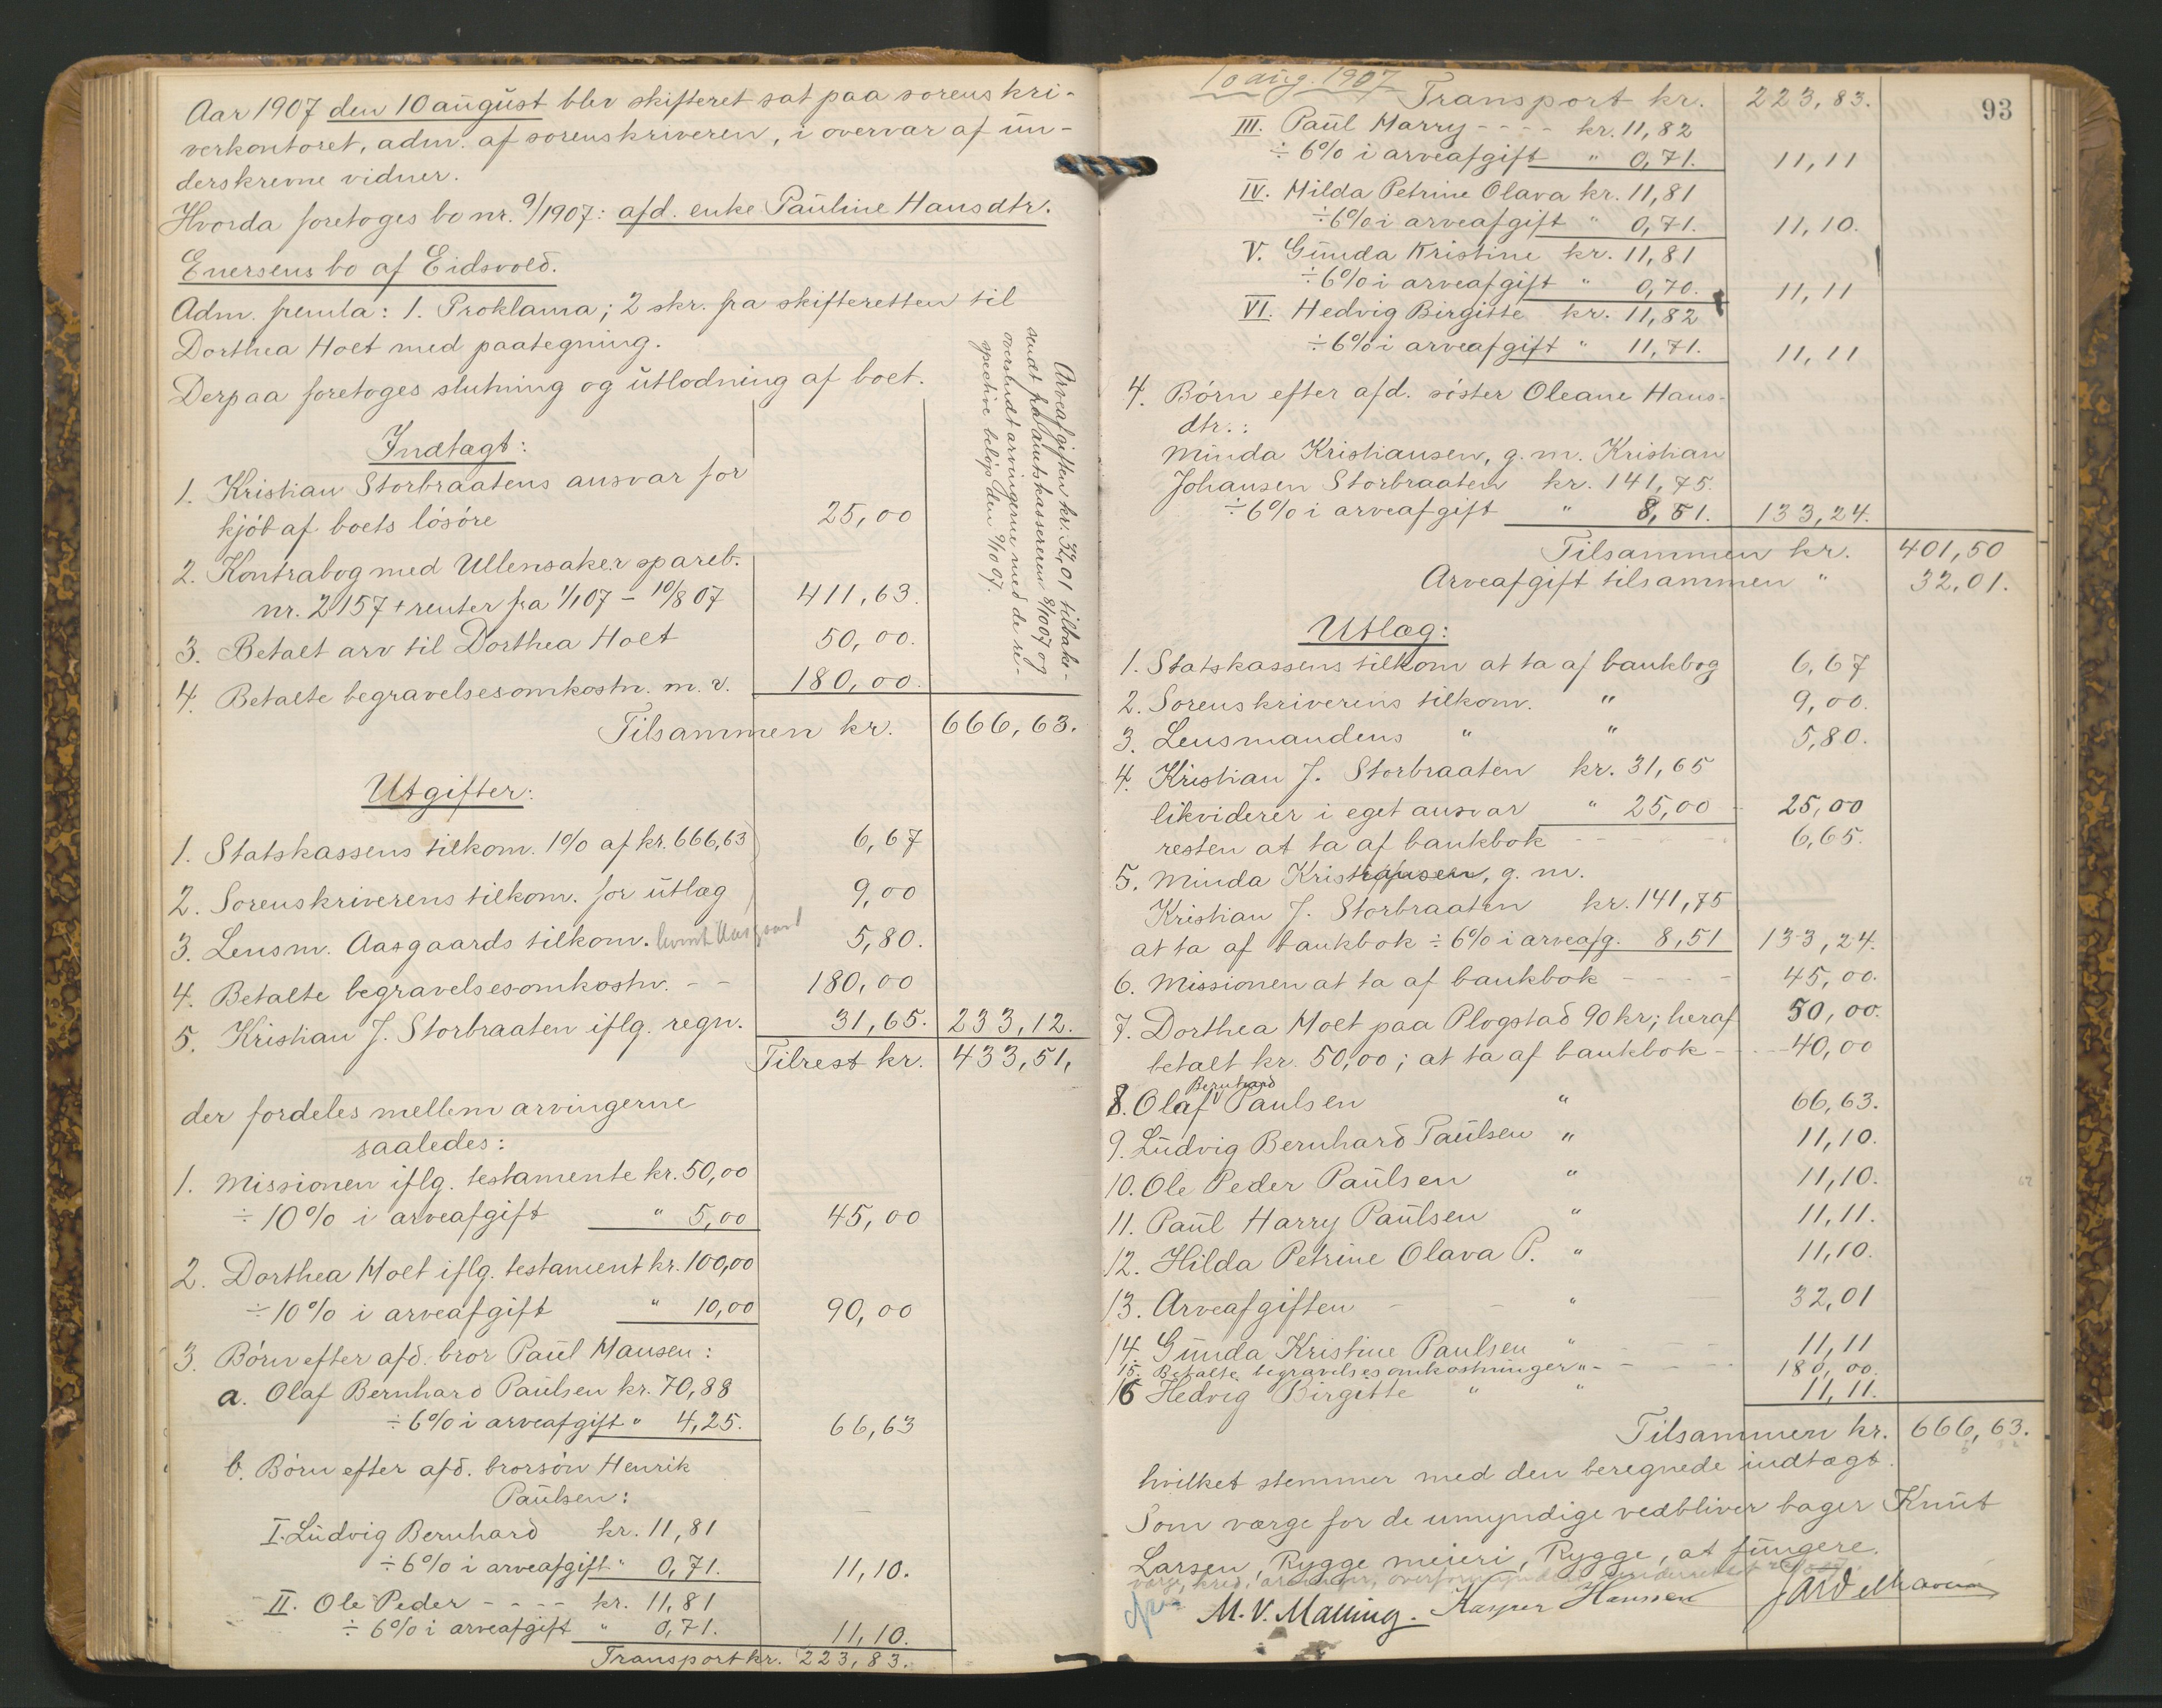 Aar 1907 den 10 august blev skifteret sat paa sorenskri-
verkontoret, adm. af sorenskriveren, i overvær af un-
derskrevne vidner.
Hvorda foretoges bo nr. 9/1907: afd. enke Pauline Hansdtr.
Enersens bo af Eidsvold.
Adm. fremla: 1. Proklama; 2 skr. fra skifteretten til
Dorthea Holt med paategning.
Derpaa foretoges slutning og utlodning af boet.
Arveafgiften kr. 32,01 tilbake-
sendt fra amtskassereren 8/10 07 og
oversendt arvingerne med de re-
spective beløp den 9/10 07.
Indtægt:
1. Kristian Storbraatens ansvar for
kjøb af boets løsøre 25,00
2. Kontrabog med Ullensaker spareb.
nr. 2157 + renter fra 1/1 07 - 10/8 07 411,63.
3. Betalt arv til Dorthea Holt 50,00.
4. Betalte begravelsesomkostn. m. v. 180,00.
Tilsammen kr. 666,63.
Utgifter:
1. Statskassens tilkom. 1% af kr. 666,63 6,67
2. Sorenskriverens tilkom. for utlæg 9,00
3. Lensm. Aasgaards tilkom. 5,80.
4. Betalte begravelsesomkostn. - - 180,00
5. Kristian J. Storbraaten iflg. regn. 31,65. 233,12.
Tilrest kr. 433,51,
der fordeles mellem arvingerne
saaledes:
1. Missionen iflg. testamente kr. 50,00
÷ 10% i arveafgift " 5,00 45,00
2. Dorthea Holt iflg. testament kr. 100,00
÷ 10% i arveafgift " 10,00 90,00
3. Børn efter afd. bror Paul Hansen:
a. Olaf Bernhard Paulsen kr. 70,88
÷ 6% i arveafgift " 4,25. 66,63
b. Børn efter afd. brorsøn Henrik
Paulsen:
I. Ludvig Bernhard kr. 11,81
÷ 6% i arveafgift " 0,71. 11,10.
II. Ole Peder - - - - kr. 11,81
÷ 6% i arveafgift " 0,71. 11,10.
Transport kr. 223,83.
93
10 aug. 1907
Transport kr. 223,83.
III. Paul Harry - - - - kr. 11,82
÷ 6% i arveafgift " 0,71. 11,11
IV. Hilda Petrine Olava kr. 11,81
÷ 6% i arveafgift " 0,71. 11,10.
V. Gunda Kristine kr. 11,81
÷ 6% i arveafgift " 0,70. 11,11
VI. Hedvig Birgitte kr. 11,82
÷ 6% i arveafgift " 11,71. 11,11
4. Børn efter afd. søster Oleane Hans-
dtr.:
Minda Kristiansen, g. m. Kristian
Johansen Storbraaten kr. 141,75.
÷ 6% i arveafgift " 8,51. 133,24.
Tilsammen kr. 401,50
Arveafgift tilsammen " 32,01.
Utlæg:
1. Statskassens tilkom at ta af bankbog 6,67
2. Sorenskriverens tilkom. " 9,00.
3. Lensmandens " " 5,80.
4. Kristian J. Storbraaten kr. 31,65
likviderer i eget ansvar " 25,00 - 25,00
resten at ta af bankbok - - - 6,65.
5. Minda Kristiansen, g. m.
Kristian J. Storbraaten kr. 141,75
at ta af bankbok ÷ 6% i arveafg. 8,51 133,24.
6. Missionen at ta af bankbok - - - - 45,00.
7. Dorthea Holt paa Plogstad 90 kr; heraf 50,00.
betalt kr. 50,00; at ta af bankbok - - - 40,00
Bernhard
8. Olaf Paulsen " 66,63.
9. Ludvig Bernhard Paulsen " 11,10.
10. Ole Peder Paulsen " 11,10.
11. Paul Harry Paulsen " 11,11.
12. Hilda Petrine Olava P. " 11,10.
13. Arveafgiften - - " - 32,01
14. Gunda Kristine Paulsen " - - 11,11
15. Betalte begravelsesomkostninger " - - - 180,00.
16 Hedvig Birgitte " " 11,11.
Tilsammen kr. 666,63.
hvilket stemmer med den beregnede indtægt.
Som værge for de umyndige vedbliver bager Knut
Larsen, Rygge meieri, Rygge, at fungere.
M. V. Malling. Kasper Hanssen